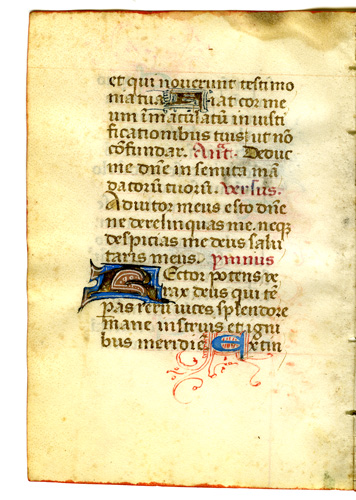 et qui noverunt testimo
nia tua Fiat cor me
um īmaculatū in iusti
ficationibus tuis ut nō
cōfundar. Ant̄. Deduc
me dn̄e in semita mā
datorū tuorū. Versus.
Adiutor meus esto dn̄e
ne derelinquas me. neqꝫ
despicias me deus salu
taris meus. Ymnus
Rector potens ve
rax deus qui tē
pas rerū vices splendore
mane instruis et igni
bus meridiē Extin